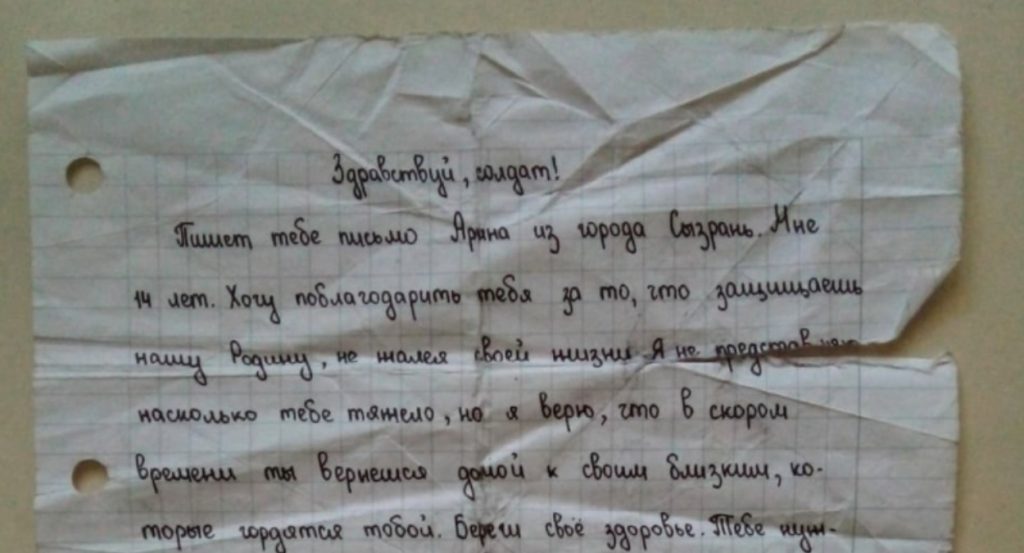 Здравствуй, солдат!
Пишет тебе письмо Арина из города Сызрань. Мне
14 лет. Хочу поблагодарить тебя за то, что защищаешь
нашу Родину, не жалея своей жизни. Я не представляю
насколько тебе тяжело, но я верю, что в скором
времени ты вернешся домой к своим близким, ко-
торые гордятся тобой. Береги своё здоровье. Тебе нуж-